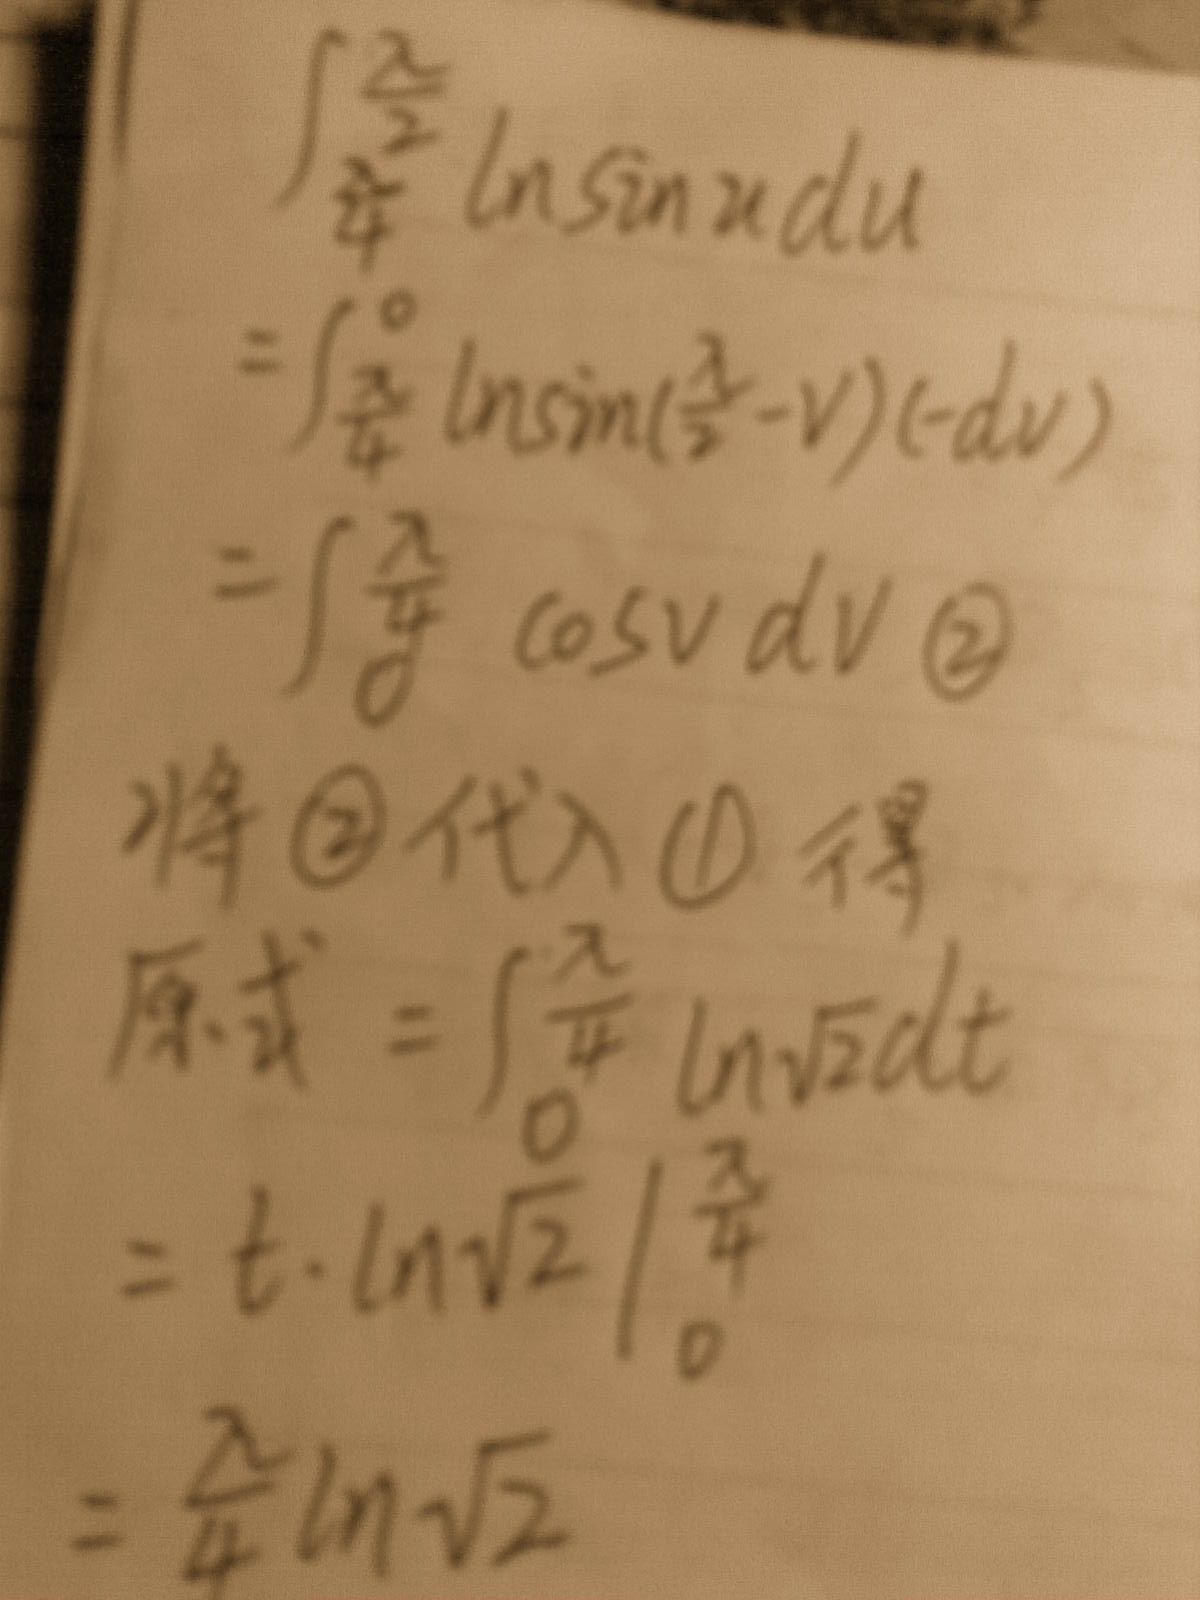 ∫_{π/4}^{π/2} ln sin u du
= ∫_{π/4}^{0} ln sin(π/2 - v)(-dv)
= ∫_{0}^{π/4} cos v dv ②
将②代入①得
原式 = ∫_{0}^{π/4} ln√2 dt
= t·ln√2 |_{0}^{π/4}
= π/4 ln√2